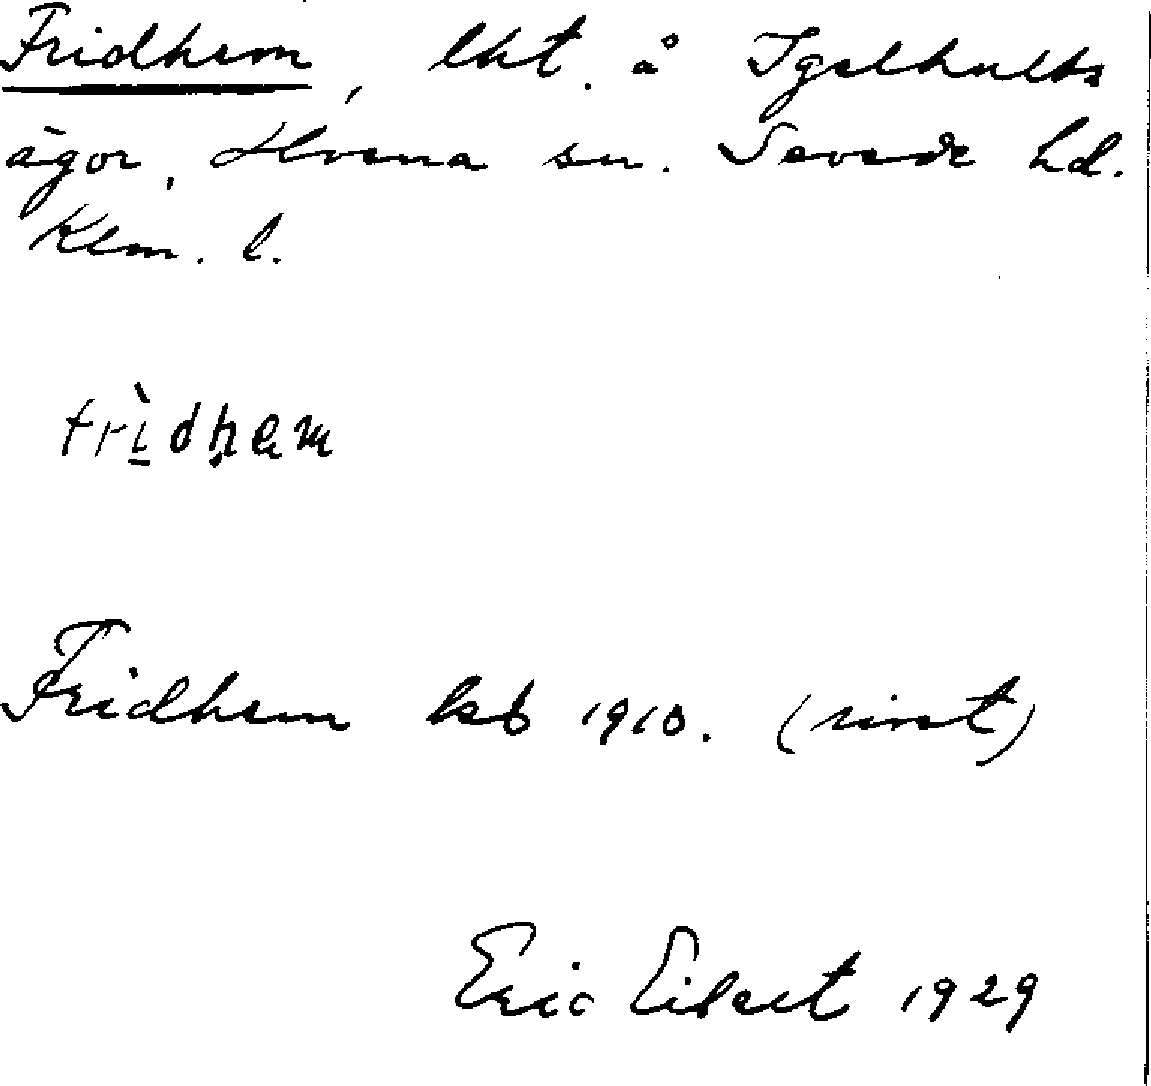 Fridhem, lht. å Igelhults
ägor, Hvena sn. Sevede hd.
Klm. l.
frìdhem
Fridhem ksb 1910.
Eric Eibert 1929